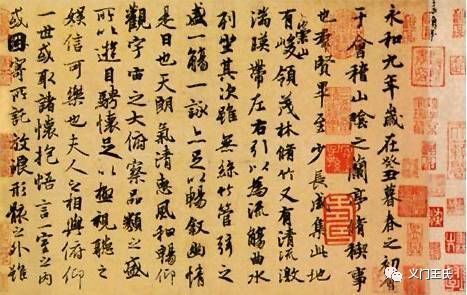 永和九年歲在癸丑暮春之初會
于會稽山陰之蘭亭脩稧事
也羣賢畢至少長咸集此地
有崇山峻領茂林脩竹又有清流激
湍暎帶左右引以為流觴曲水
列坐其次雖無絲竹管弦之
盛一觴一詠亦足以暢敘幽情
是日也天朗氣清惠風和暢仰
觀宇宙之大俯察品類之盛
所以遊目騁懷足以極視聽之
娛信可樂也夫人之相與俯仰
一世或取諸懷抱悟言一室之內
或因寄所託放浪形骸之外雖
义门王氏